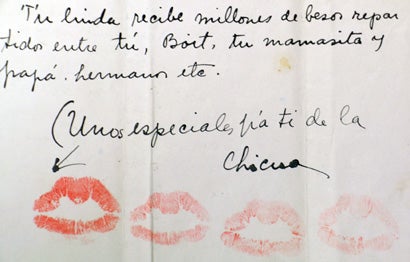 Tu linda recibe millones de besos repar
tidos entre tú, Boit, tu mamasita y
papá. hermanos etc.
(Unos especiales p'a ti de la
Chicua